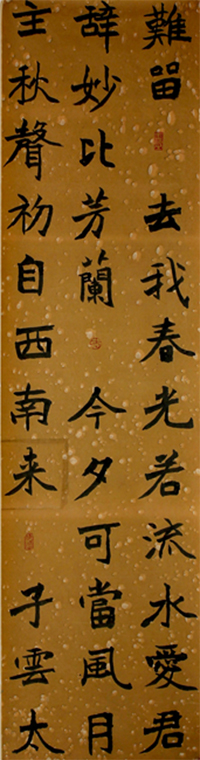 難留 去我春光若流水愛君
辭妙比芳蘭 今夕可當風月
主秋聲初自西南来 子雲太